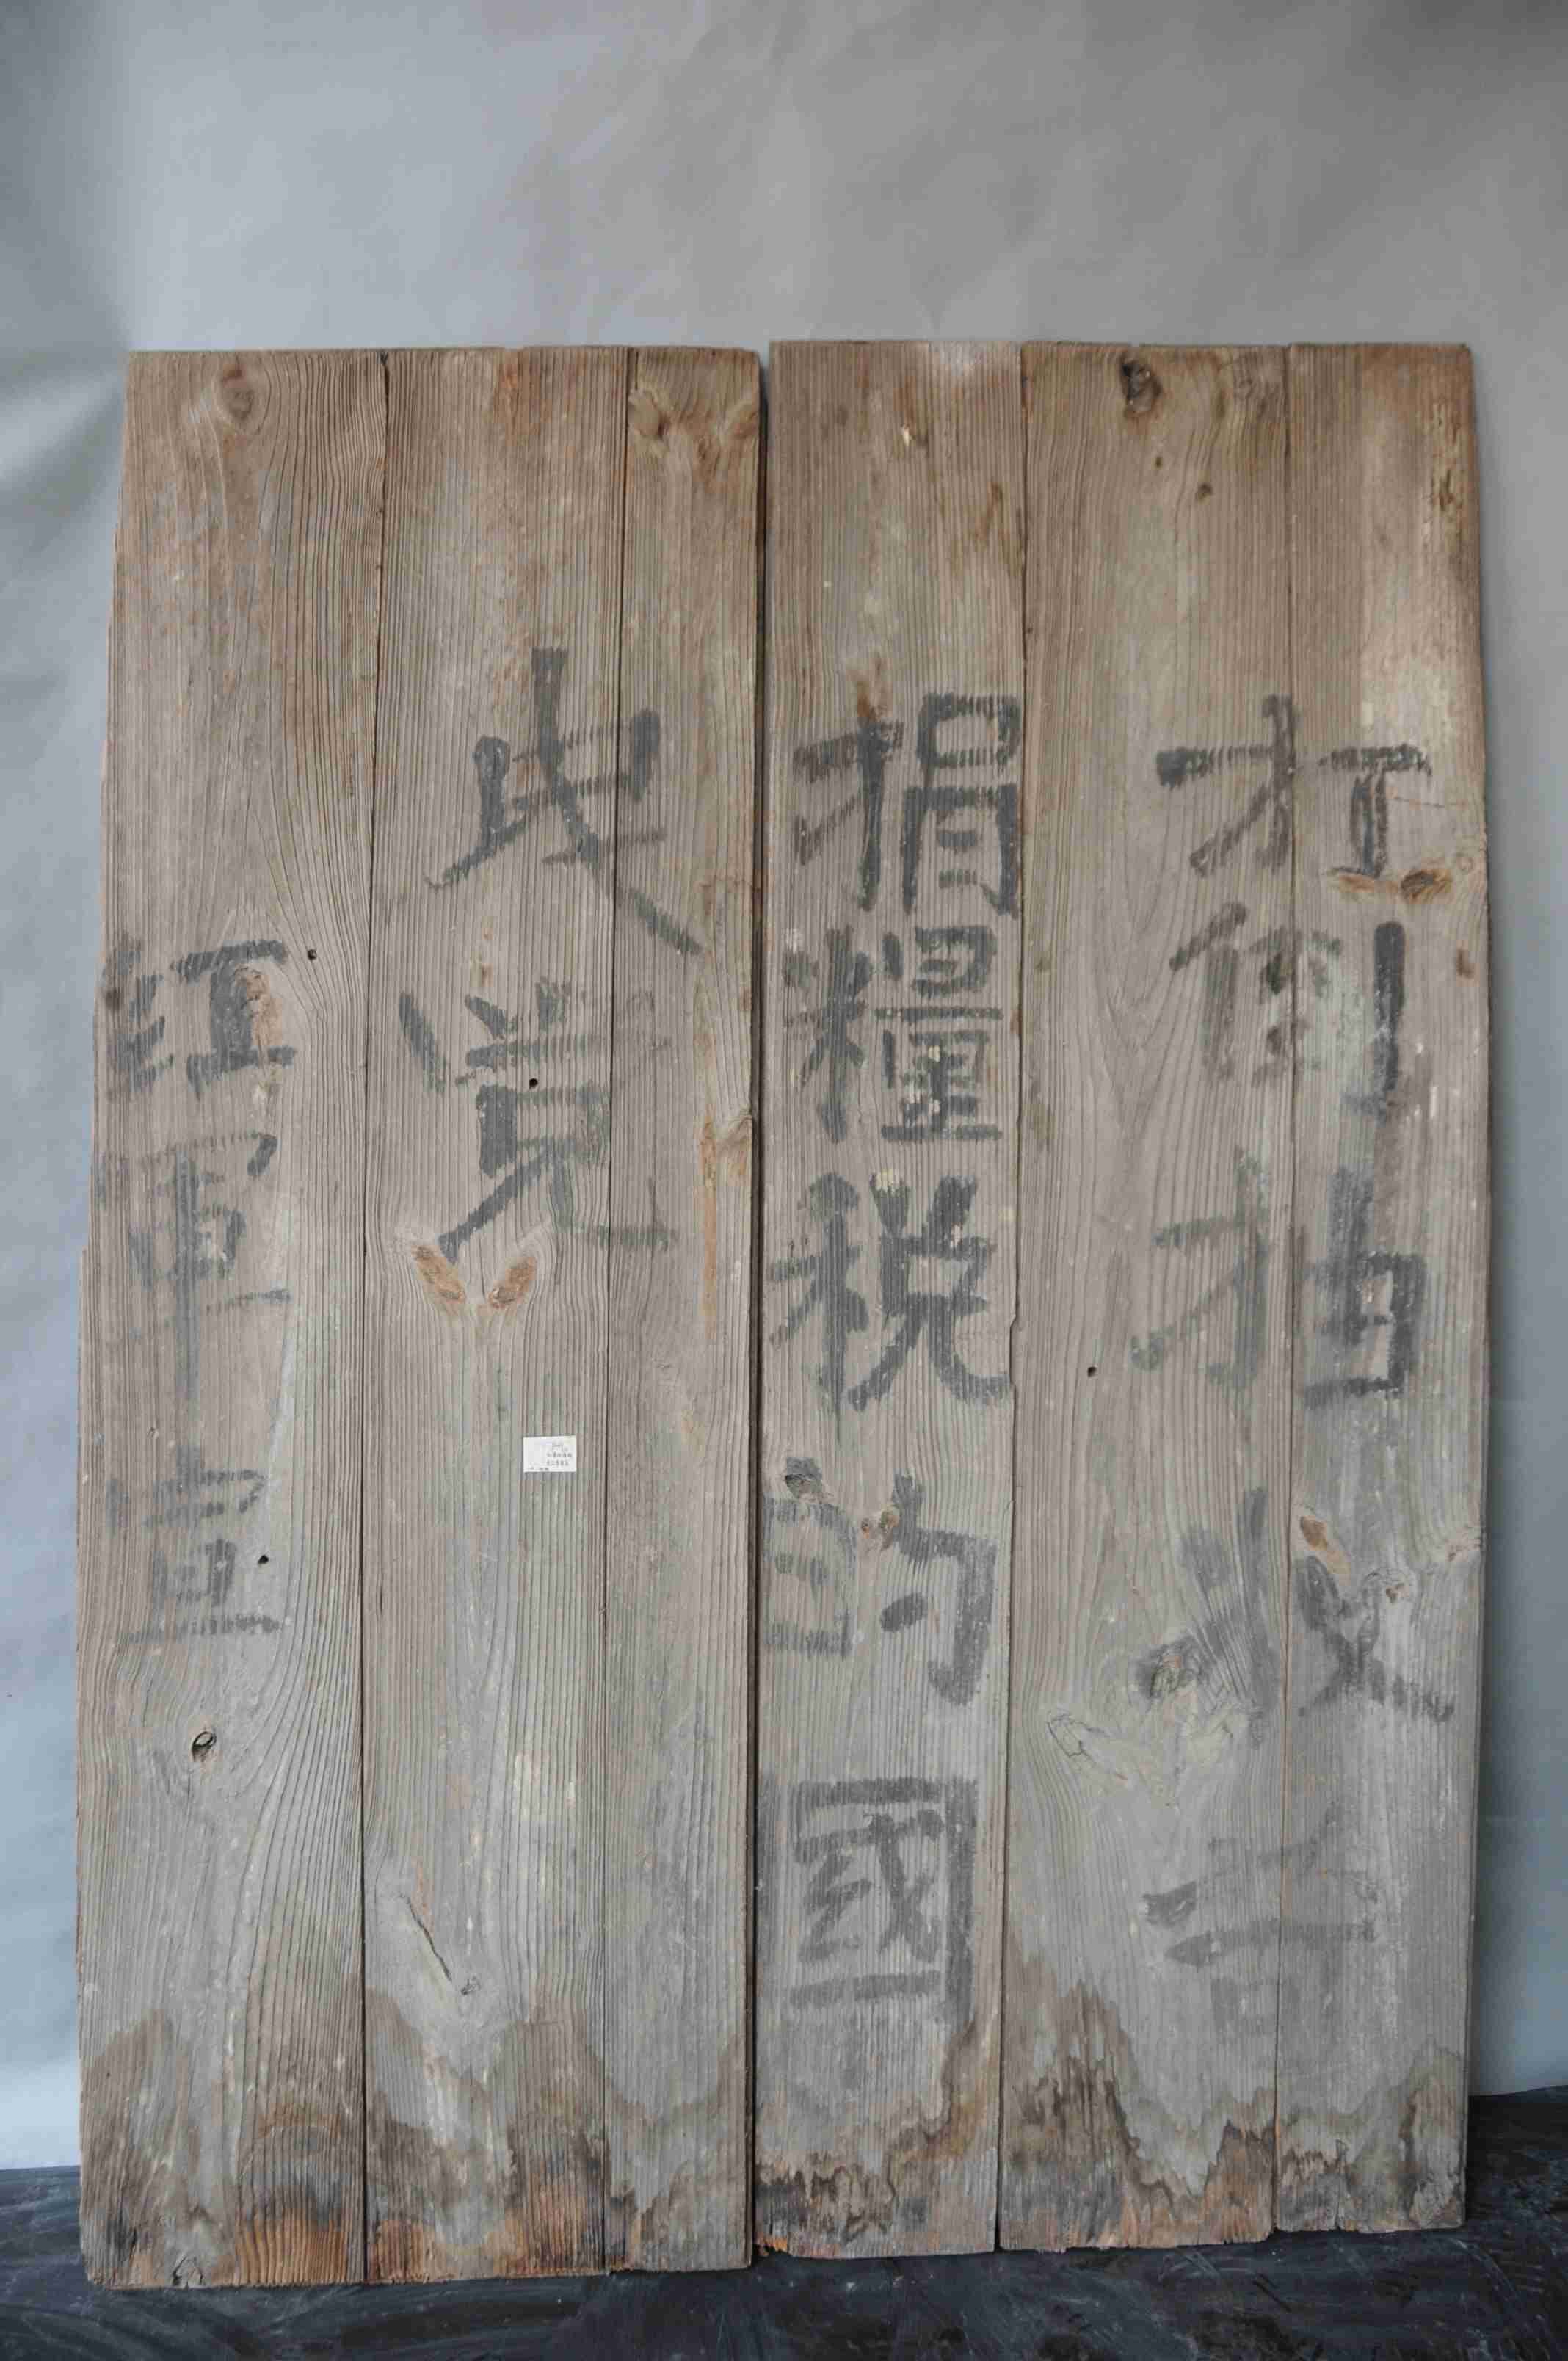 打倒抽收苛
捐糧税的國
民党
紅軍宣